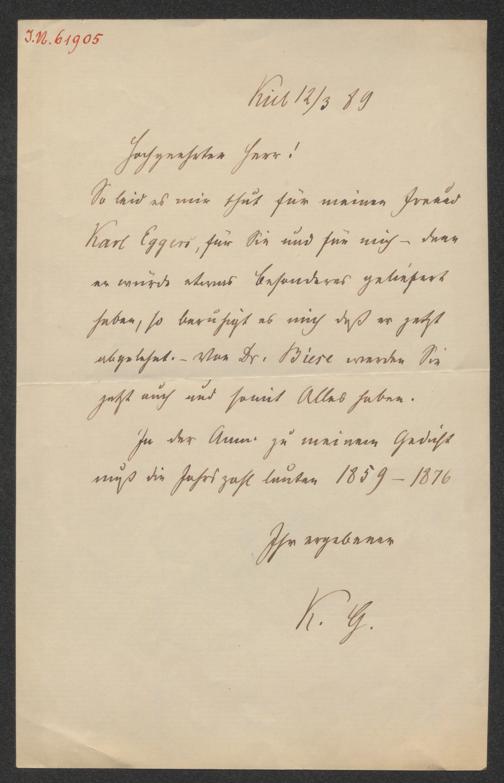 I.N. 61905
Kiel 12/3 89
Hochgeehrter Herr!
So leid es mir thut für meinen Freund
Karl Eggers, für Sie und für mich – denn
er würde etwas besonderes geliefert
haben, so beruhigt es mich daß er jetzt
abgelehnt. – Von Dr. Biese werden Sie
jetzt auch und somit Alles haben.
In der Anm. zu meinem Gedicht
muß die Jahrszahl lauten 1859 – 1876
Ihr ergebener
K. G.